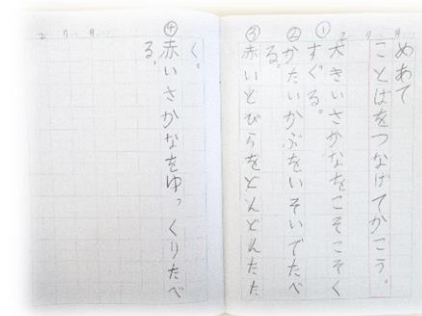 めあて
ことばをつなげてかこう。
大きいさかなをこそこそく
①すぐる。
②かたいかぶをいそいでたべ
る。
③赤いとびらをどんどんたた
く。
④赤いさかなをゆっくりたべ
る。